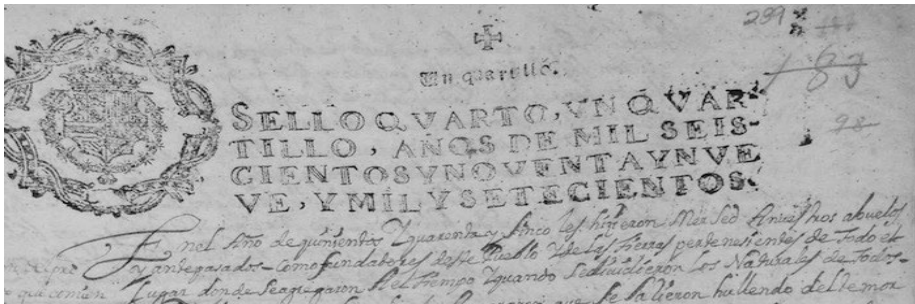 289
Un quartillo.
183
SELLO QVARTO, VN QVAR-
TILLO, AÑOS DE MIL SEIS-
98
CIENTOS Y NOVENTA Y NVE
VE, Y MIL Y SETECIENTOS.
En el Año de quinientos Yquarenta y sinco les hisieron Mersed Anuestros abuelos
y antepasados - como fundadores deste Pueblo Ydelas tierras pertenesientes de todo el
que comun Lugar donde Seagregaron Al tiempo Yquando Sediuidieron Los Naturales de todos -
que Se salieron hullendo del temor